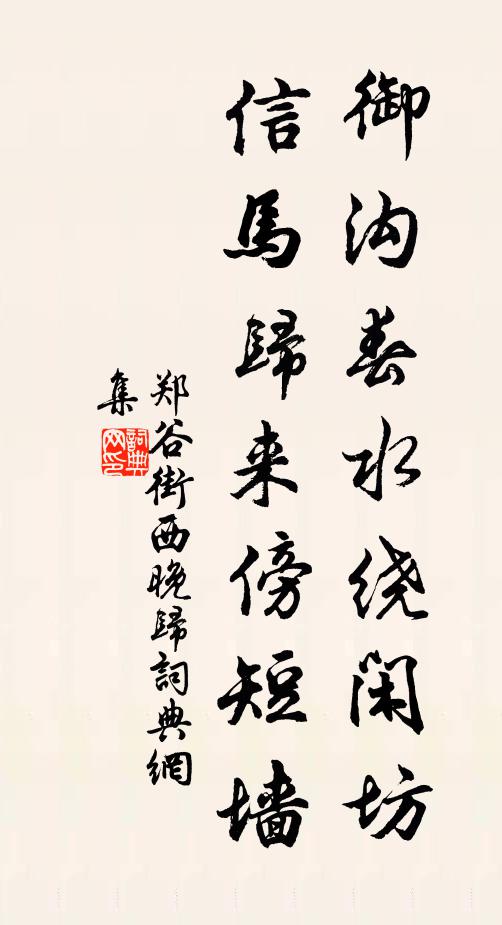 御沟春水绕闲坊
信馬歸来傍短墙
郑谷街西晚歸詞典網
集
詞典
网印